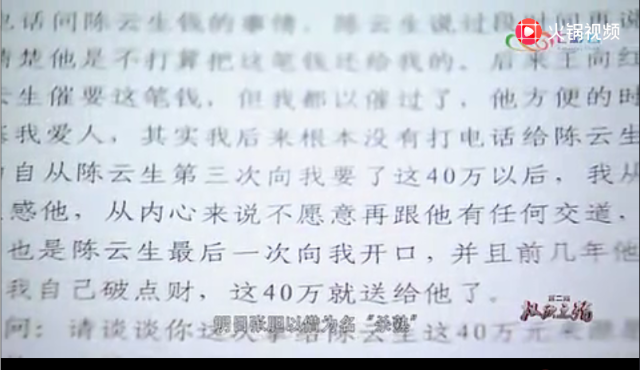 火锅视频
电话问陈云生钱的事情，陈云生说过段时间再说
清楚他是不打算把这笔钱还给我的。后来王向红
云生催要这笔钱，但我都以催过了，他方便的时
我爱人，其实我后来根本没有打电话给陈云生
自从陈云生第三次向我要了这40万以后，我从
感他，从内心来说不愿意再跟他有任何交道，
也是陈云生最后一次向我开口，并且前几年他
我自己破点财，这40万就送给他了。
第二回
明目张胆以借为名“杀熟”
问：请谈谈你这次拿给陈云生这40万元